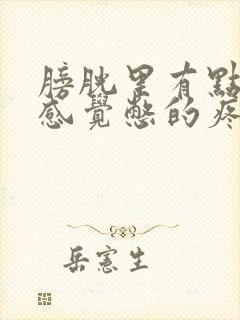 膀胱里有點
感覺憋的疼
岳憲生